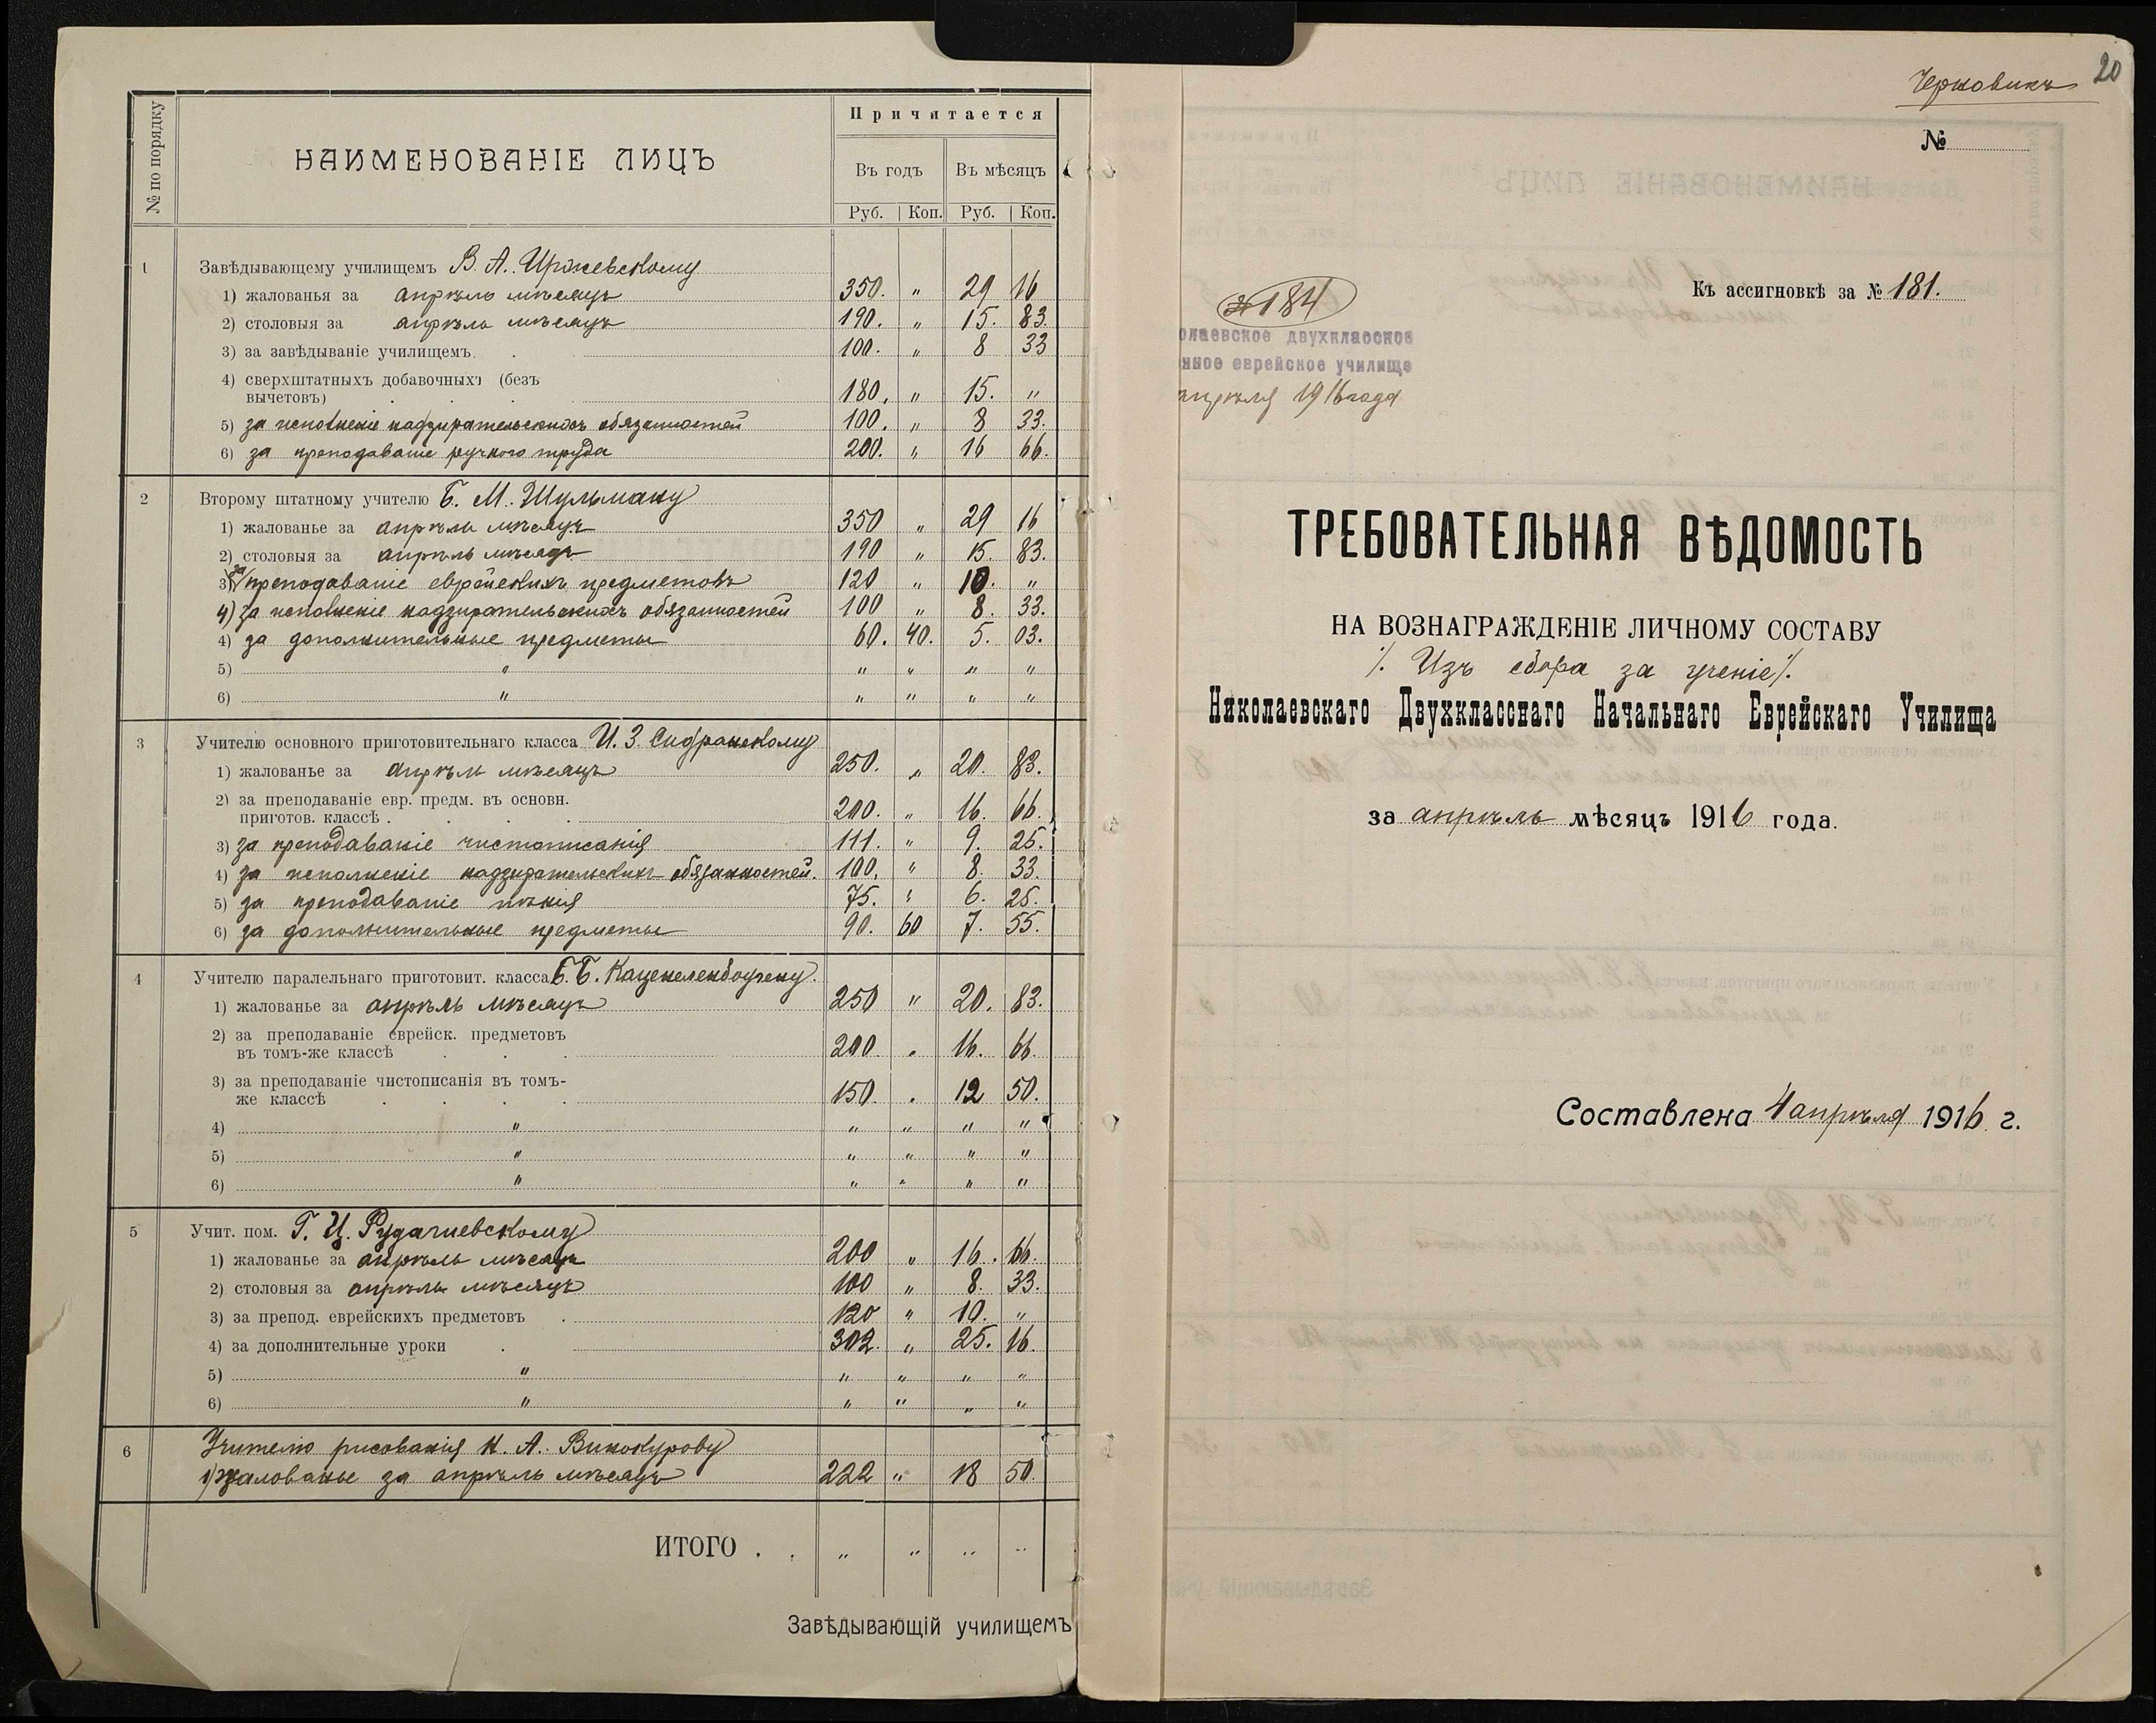 № по порядку
НАИМЕНОВАНІЕ ЛИЦЪ
Причитается
Въ годъ
Въ мѣсяцъ
Руб.
Коп.
Руб.
Коп.
1 Завѣдывающему училищемъ В. А. Иржевскому
1) жалованья за апрѣль мѣсяцъ 350. " 29 16
2) столовыя за апрѣль мѣсяцъ 190. " 15. 83.
3) за завѣдываніе училищемъ. 100. " 8 33
4) сверхштатныхъ добавочныхъ (безъ
вычетовъ) 180. " 15. "
5) за исполненіе надзирательскихъ обязанностей 100. " 8 33.
6) за преподаваніе ручного труда 200. " 16 66.
2 Второму штатному учителю Б. М. Шульману
1) жалованье за апрѣль мѣсяцъ 350 " 29 16
2) столовыя за апрѣль мѣсяцъ 190 " 15. 83.
3) за преподаваніе еврейскихъ предметовъ 120 " 10. "
4) за исполненіе надзирательскихъ обязанностей 100 " 8. 33.
4) за дополнительные предметы 60. 40. 5. 03.
5) " " " " "
6) " " " " "
3 Учителю основного приготовительнаго класса И. З. Сидранскому
1) жалованье за апрѣль мѣсяцъ 250. " 20. 83.
2) за преподаваніе евр. предм. въ основн.
приготов. классѣ . 200. " 16. 66.
3) за преподаваніе чистописанія 111. " 9. 25.
4) за исполненіе надзирательскихъ обязанностей. 100. " 8. 33.
5) за преподаваніе пѣнія 75. " 6. 25.
6) за дополнительные предметы 90. 60 7. 55.
4 Учителю паралельнаго приготовит. класса Б. Б. Каценеленбогену.
1) жалованье за апрѣль мѣсяцъ 250 " 20. 83.
2) за преподаваніе еврейск. предметовъ
въ томъ-же классѣ 200. " 16. 66.
3) за преподаваніе чистописанія въ томъ-
же классѣ 150. " 12 50.
4) " " " " "
5) " " " " "
6) " " " " "
5 Учит. пом. Г. Ц. Рудачиевскому
1) жалованье за апрѣль мѣсяцъ 200 " 16. 66.
2) столовыя за апрѣль мѣсяцъ 100 " 8. 33.
3) за препод. еврейскихъ предметовъ 120 " 10. "
4) за дополнительные уроки 302. " 25. 16.
5) " " " " "
6) " " " " "
6 Учителю рисованія Н. А. Винокурову
1) жалованье за апрѣль мѣсяцъ 222 " 18 50.
ИТОГО . . " " " "
Завѣдывающій училищемъ
Черновикъ 20
№
Къ ассигновкѣ за № 181.
184
олаевское двухклассное
нное еврейское училище
апрѣля 1916 года
ТРЕБОВАТЕЛЬНАЯ ВѢДОМОСТЬ
НА ВОЗНАГРАЖДЕНІЕ ЛИЧНОМУ СОСТАВУ
/. Изъ сбора за ученіе /.
Николаевскаго Двухкласснаго Начальнаго Еврейскаго Училища
за апрѣль мѣсяцъ 1916 года.
Составлена 4 апрѣля 1916 г.